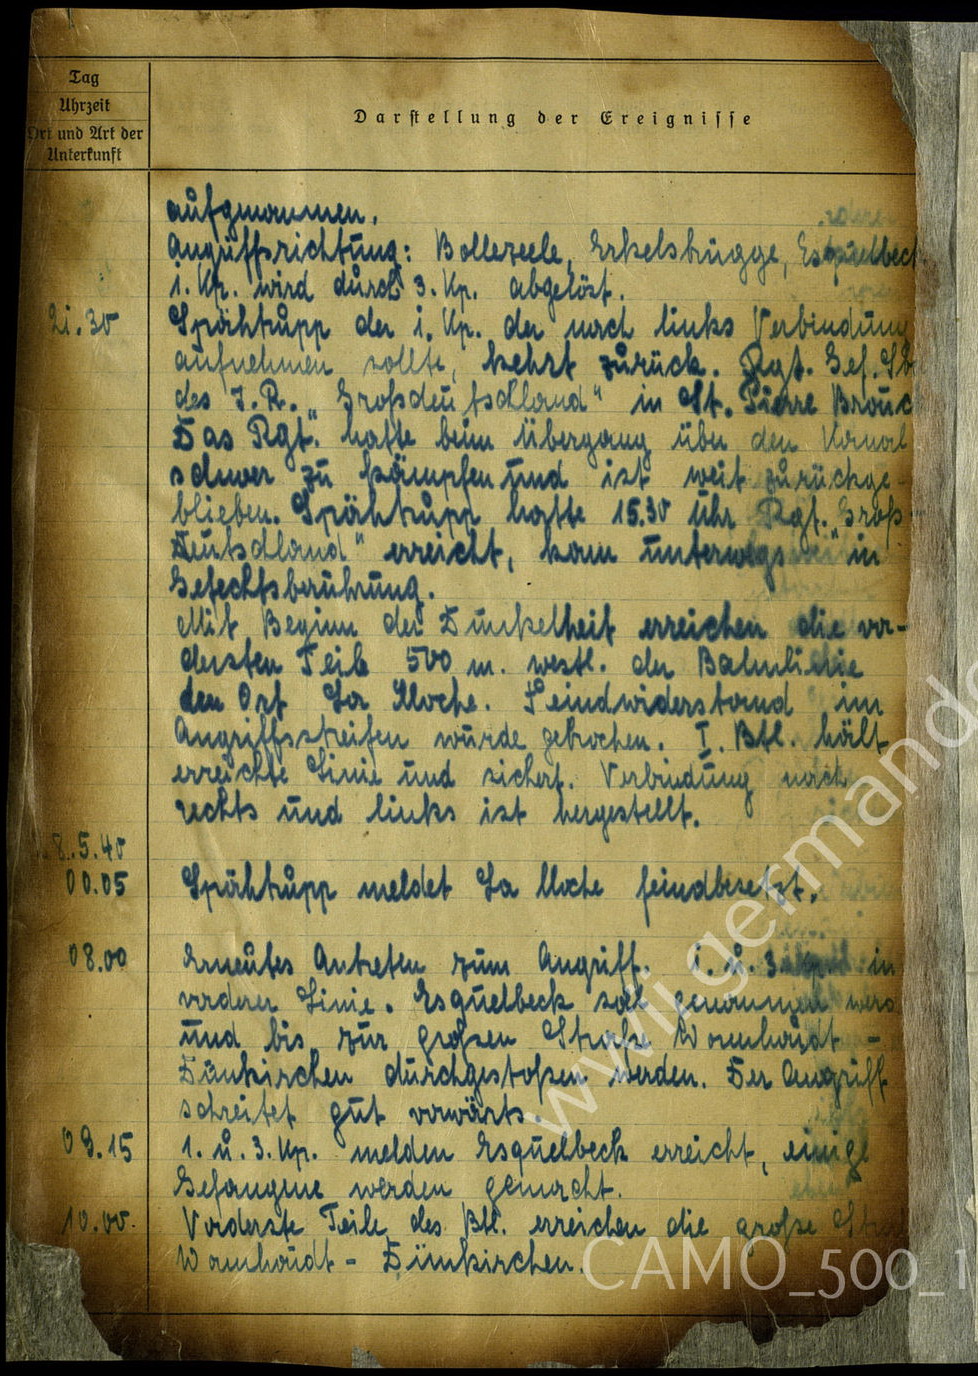 Tag
Uhrzeit
Ort und Art der
Unterkunft
Darstellung der Ereignisse
aufgenommen.
Angriffsrichtung: Bollezeele, Erkelsbrügge, Esquelbeck
1. Kp. wird durch 3. Kp. abgelöst.
21.30 Spähtrupp der 1. Kp. der nach links Verbindung
aufnehmen sollte, kehrt zurück. Rgt. Gef. St
des I.R. „Großdeutschland" in St. Pierre Brouc
Das Rgt. hatte beim Übergang über den Kanal
schwer zu kämpfen und ist weit zurückge-
blieben. Spähtrupp hatte 15.30 Uhr Rgt. „Groß-
deutschland" erreicht, kam unterwegs in
Gefechtsberührung.
Mit Beginn der Dunkelheit erreichen die vor-
dersten Teile 500 m. westl. der Bahnlinie
den Ort La Cloche. Feindwiderstand im
Angriffsstreifen wurde gebrochen. I. Btl. hält
erreichte Linie und sichert. Verbindung nach
rechts und links ist hergestellt.
8.5.40
00.05 Spähtrupp meldet La Cloche feindbesetzt.
08.00 Erneutes Antreten zum Angriff. 1. u. 3. Kp. in
vorderer Linie. Esquelbeck soll genommen werd
und bis zur großen Straße Wormhoudt -
Dünkirchen durchgestoßen werden. Der Angriff
schreitet gut vorwärts.
09.15 1. u. 3. Kp. melden Esquelbeck erreicht, einige
Gefangene werden gemacht.
10.00. Vorderste Teile des Btl. erreichen die große Str
Wormhoudt - Dünkirchen.
www.germand
CAMO_500_1